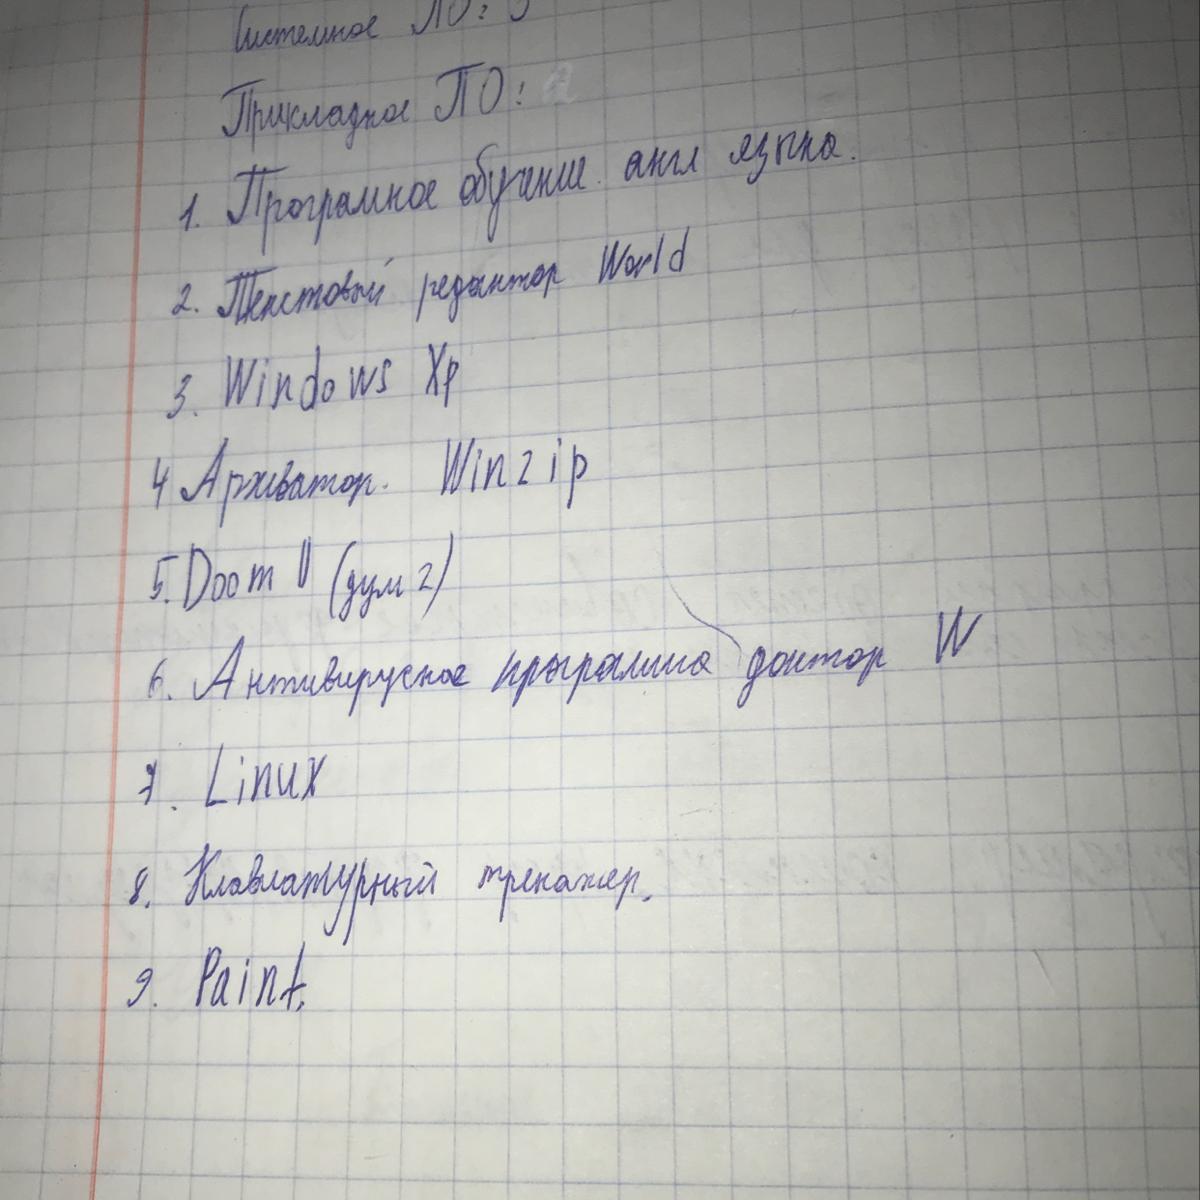 Системное ПО: 3
Прикладное ПО:
1. Програмное обучение англ языка.
2. Текстовый редактор World
3. Windows Xp
4 Архиватор. Winzip
5. Doom II (дум 2)
6. Антивирусное программа доктор W
7. Linux
8. Клавиатурный тренажер.
9. Paint.